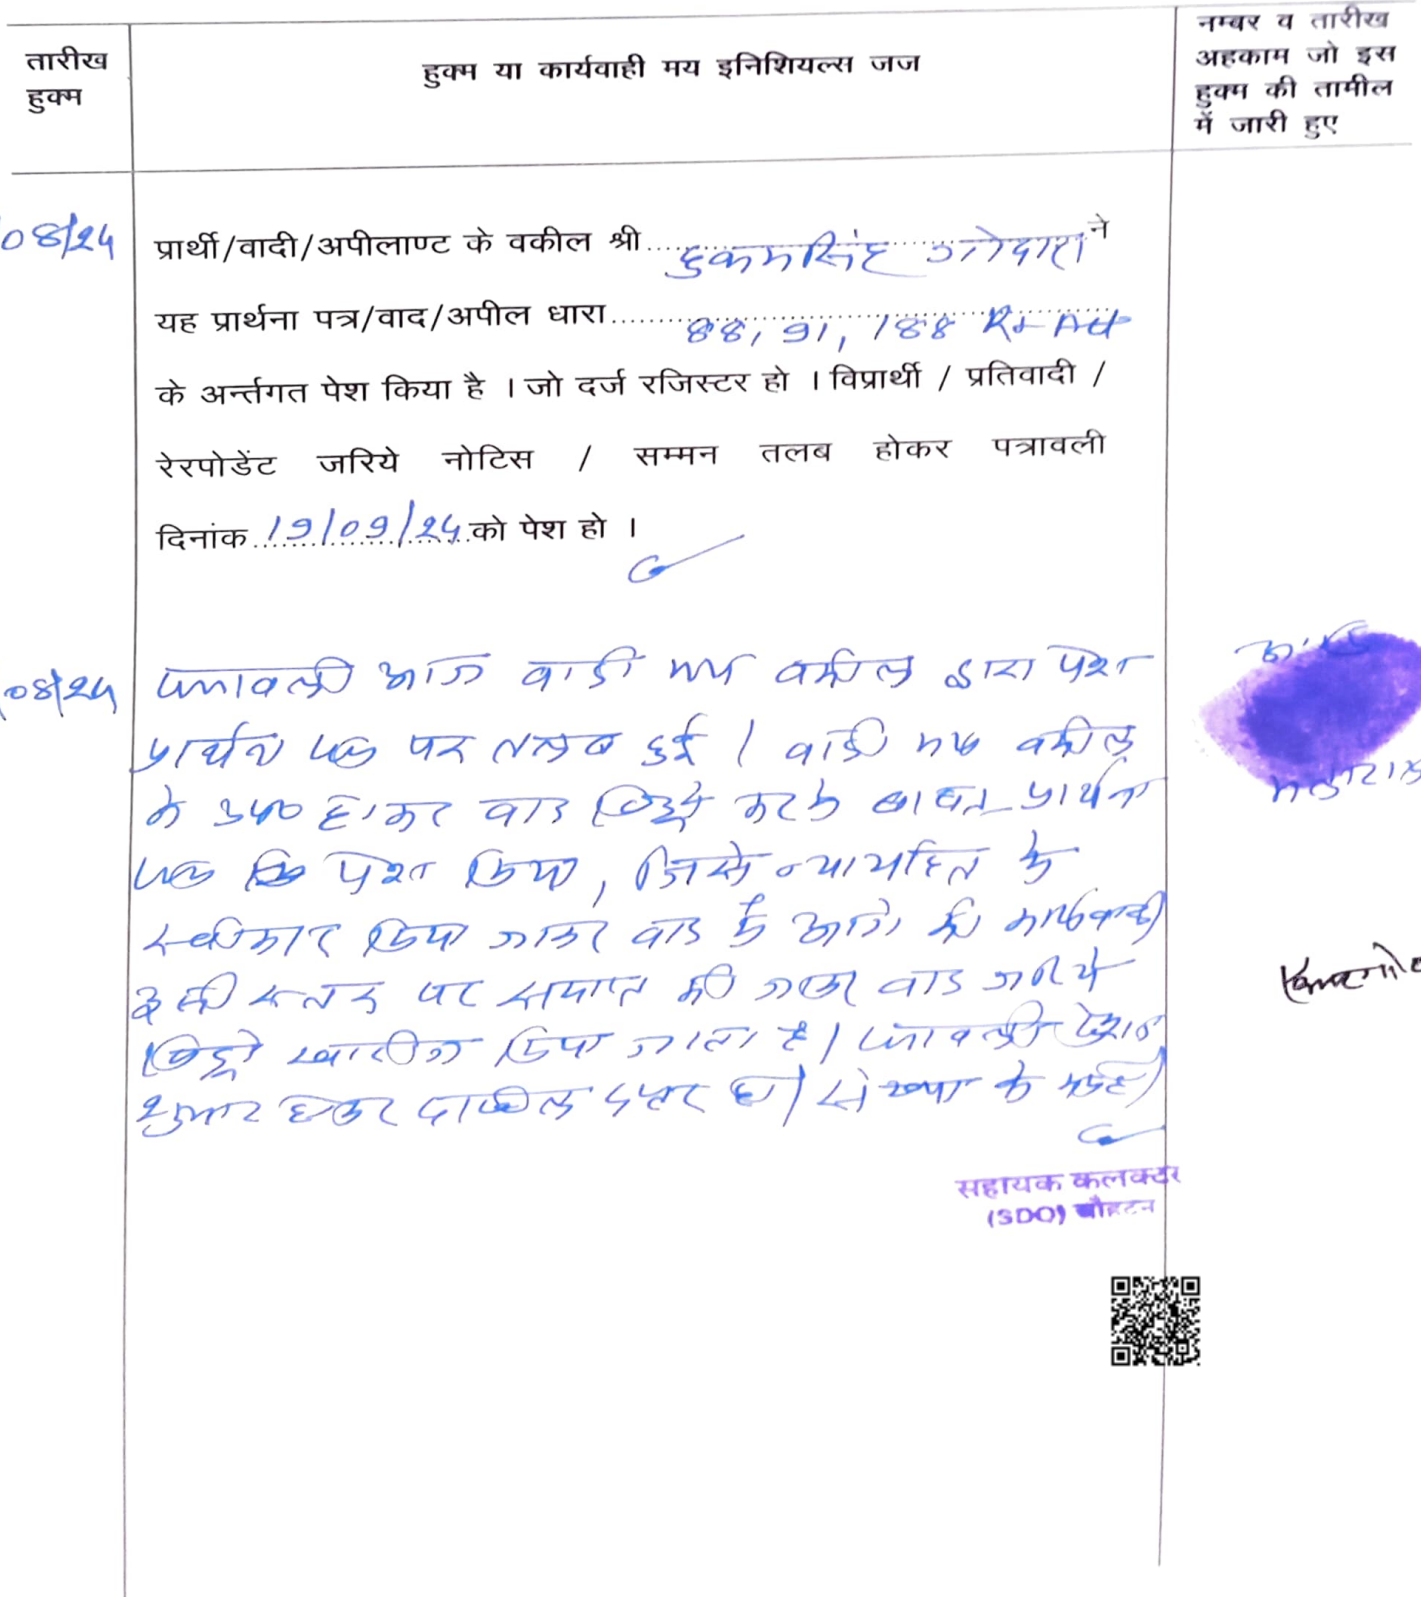 तारीख
हुक्म
हुक्म या कार्यवाही मय इनिशियल्स जज
नम्बर व तारीख
अहकाम जो इस
हुक्म की तामील
में जारी हुए
08/24
प्रार्थी/वादी/अपीलाण्ट के वकील श्री हुकमसिंह गोदारा ने
यह प्रार्थना पत्र/वाद/अपील धारा 88, 91, 188 RT Act
के अर्न्तगत पेश किया है । जो दर्ज रजिस्टर हो । विप्रार्थी / प्रतिवादी /
रेरपोडेंट जरिये नोटिस / सम्मन तलब होकर पत्रावली
दिनांक 19/09/24 को पेश हो ।
08/24
पत्रावली आज वादी मय वकील द्वारा पेश
प्रार्थना पत्र पर तलब हुई । वादी मय वकील
के उप० होकर वाद विड्रो करने बाबत प्रार्थना
पत्र पेश किया, जिसे न्यायहित के
स्वीकार किया जाकर वाद के आगे की कार्यवाही
इसी स्तर पर समाप्त की जाकर वाद जरिये
विड्रो खारिज किया जाता है । पत्रावली फैसल
शुमार होकर दाखिल दफ्तर हो ।
सहायक कलक्टर
(SDO) चौहटन